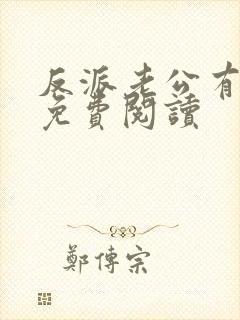 反派老公有
免費閱讀
鄭傳宗